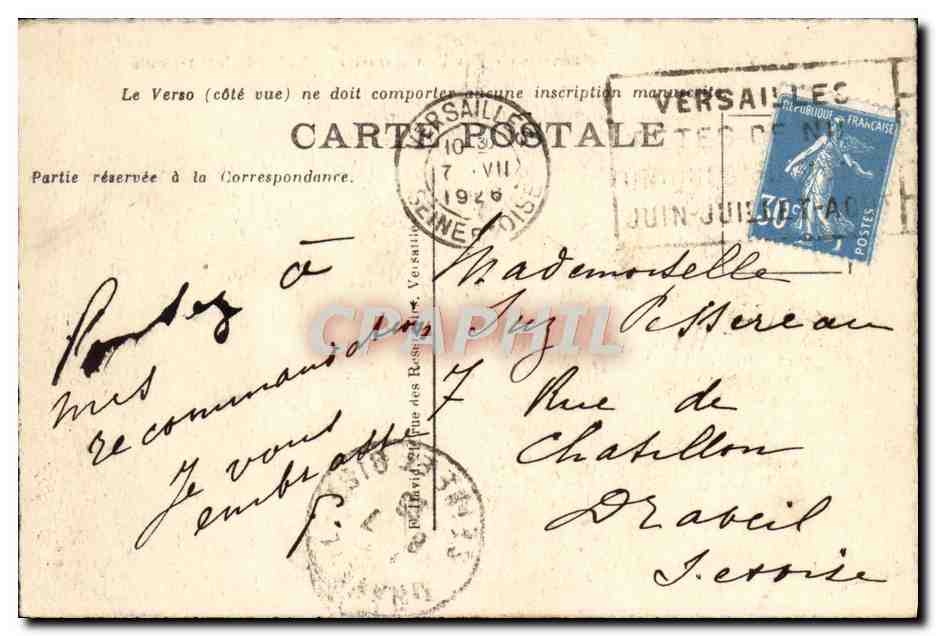 Le Verso (côté vue) ne doit comporter aucune inscription manuscrite
CARTE POSTALE
Partie réservée à la Correspondance.
VERSAILLES
10 30
7 VII
1926
SEINE-&-OISE
VERSAILLES
FÊTES DE NUIT
UNIQUES
JUIN-JUILLET-AOUT
REPUBLIQUE FRANÇAISE
30c
POSTES
Pensez à
mes
recommandations
Je vous
embrasse
Mademoiselle
Suz Pissereau
7 Rue de
Chatillon
Draveil
S. et Oise
E. David, rue des Réservoirs, Versailles
CPAPHIL
SEINE ET OISE